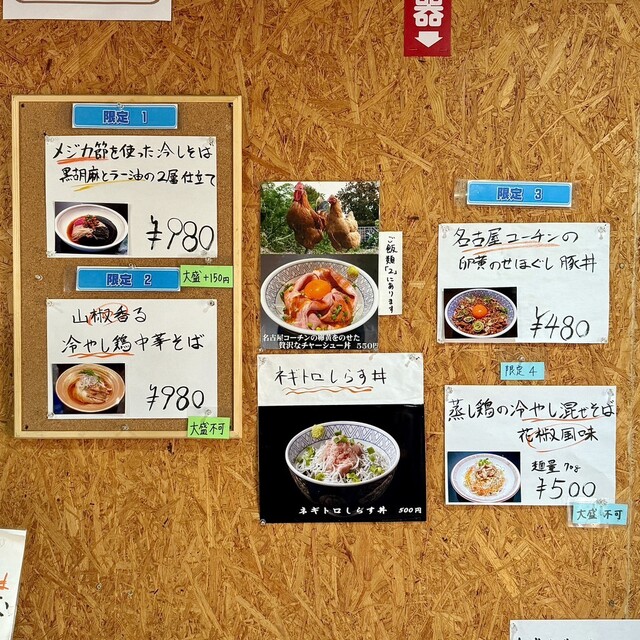 器
限定 1
メジカ節を使った冷しそば
黒胡麻とラー油の2層仕立て
¥980
限定 2
大盛+150円
山椒香る
冷やし鶏中華そば
¥980
大盛不可
ご飯類「2」にあります
名古屋コーチンの卵黄をのせた
贅沢なチャーシュー丼 550円
ネギトロしらす丼
ネギトロしらす丼 500円
限定 3
名古屋コーチンの
卵黄のせほぐし豚丼
¥480
限定 4
蒸し鶏の冷やし混ぜそば
花椒風味
麺量 70g
¥500
大盛 不可